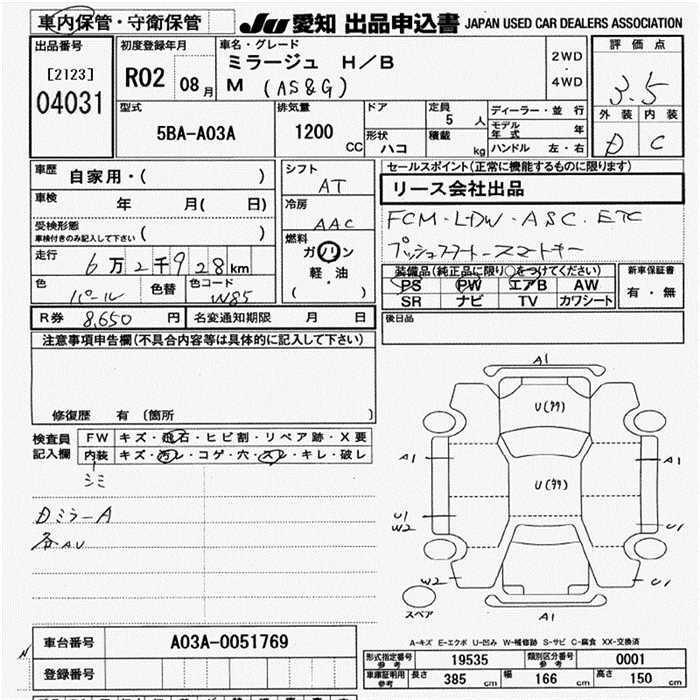 車内保管・守衛保管
JU 愛知 出品申込書 JAPAN USED CAR DEALERS ASSOCIATION
出品番号
[2123]
04031
初度登録年月
R02 08月
車名・グレード
ミラージュ H/B
M (AS&G)
2WD
・
4WD
評価点
3.5
外装 内装
D C
型式
5BA-A03A
排気量
1200 CC
ドア
形状
ハコ
定員
5 人
積載
kg
ディーラー・並行
モデル年式 年
ハンドル 左・右
車歴
自家用・( )
車検
年 月( 日)
受検形態
車検付きのみ記入して下さい
( )
走行
6万2千928km
色
パール
色替
色コード
W85
シフト
AT
冷房
AAC
燃料
ガソリン
軽・油
( )
セールスポイント(正常に機能するものに限ります)
リース会社出品
FCM・LDW・ASC・ETC
プッシュスタート・スマートキー
装備品(純正品に限り○をつけてください)
PS PW エアB AW
SR ナビ TV カワシート
新車保証書
有・無
後日品
R券 8,650 円
名変通知期限 月 日
注意事項申告欄(不具合内容等は具体的に記入して下さい)
修復歴 有(箇所 )
検査員
記入欄
FW キズ・飛石・ヒビ割・リペア跡・X要
内装 キズ・汚レ・コゲ・穴・スレ・キレ・破レ
シミ
Dミラー A
各AU
A1
U(タタ)
A1 A1
U(タタ)
U1
W2
U1
W2 U1
スペア
A1
A-キズ E-エクボ U-凹み W-補修跡 S-サビ C-腐食 XX-交換済
車台番号 A03A-0051769
登録番号
型式指定番号
参考
19535
類別区分番号
参考
0001
車庫証明用
参考
長さ 385 cm
幅 166 cm
高さ 150 cm